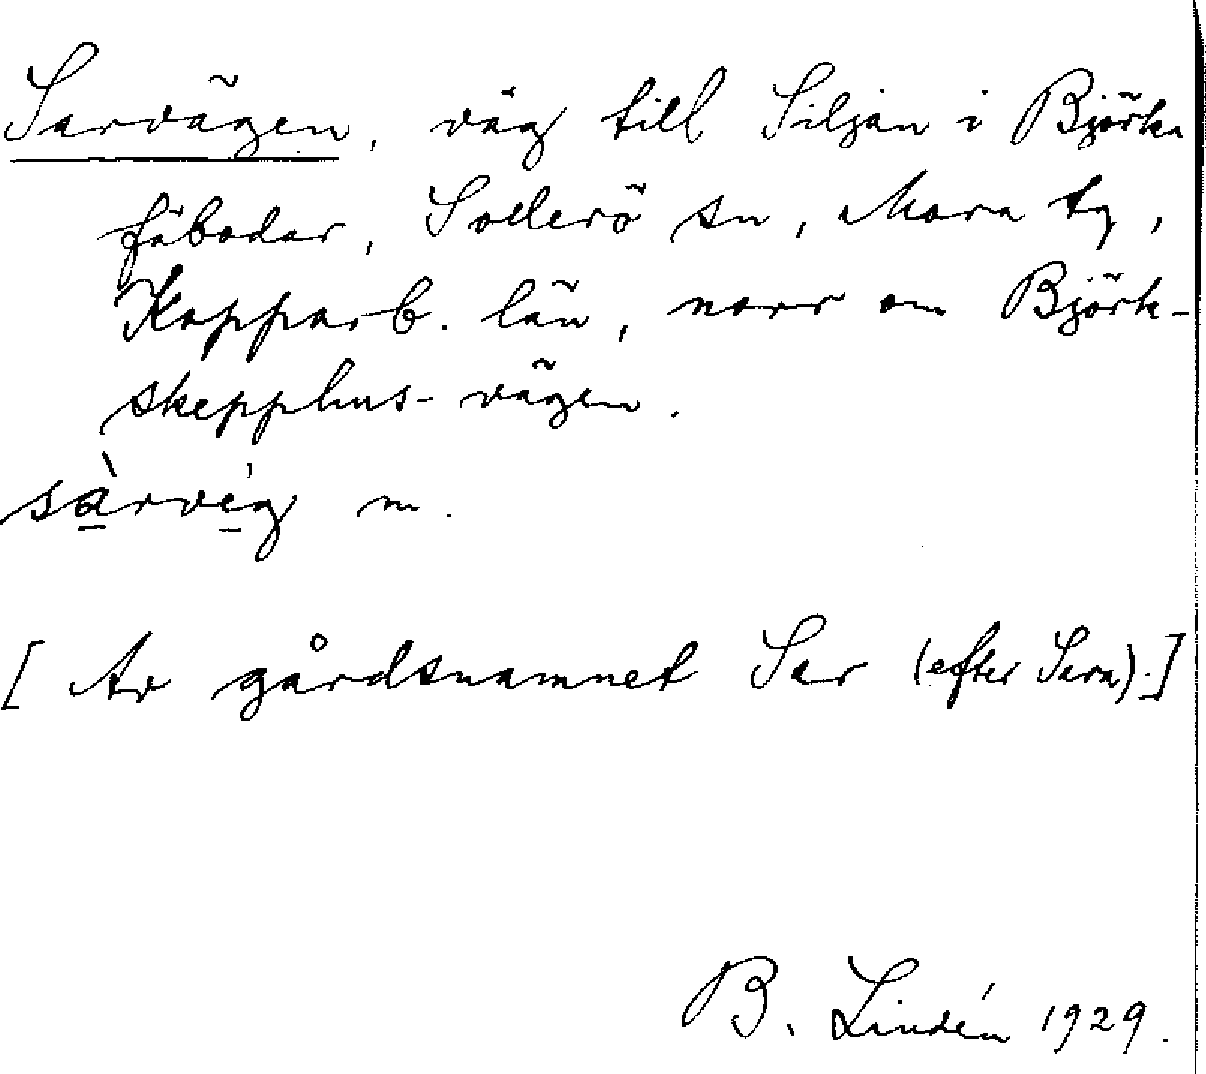 Sarvägen, väg till Siljan i Björka
fäbodar, Sollerö sn, Mora tg,
Kopparb. län, norr om Björk-
skepphus-vägen.
sàrvég m.
[Av gårdsnamnet Sar (efter Sara).]
B. Lindén 1929.